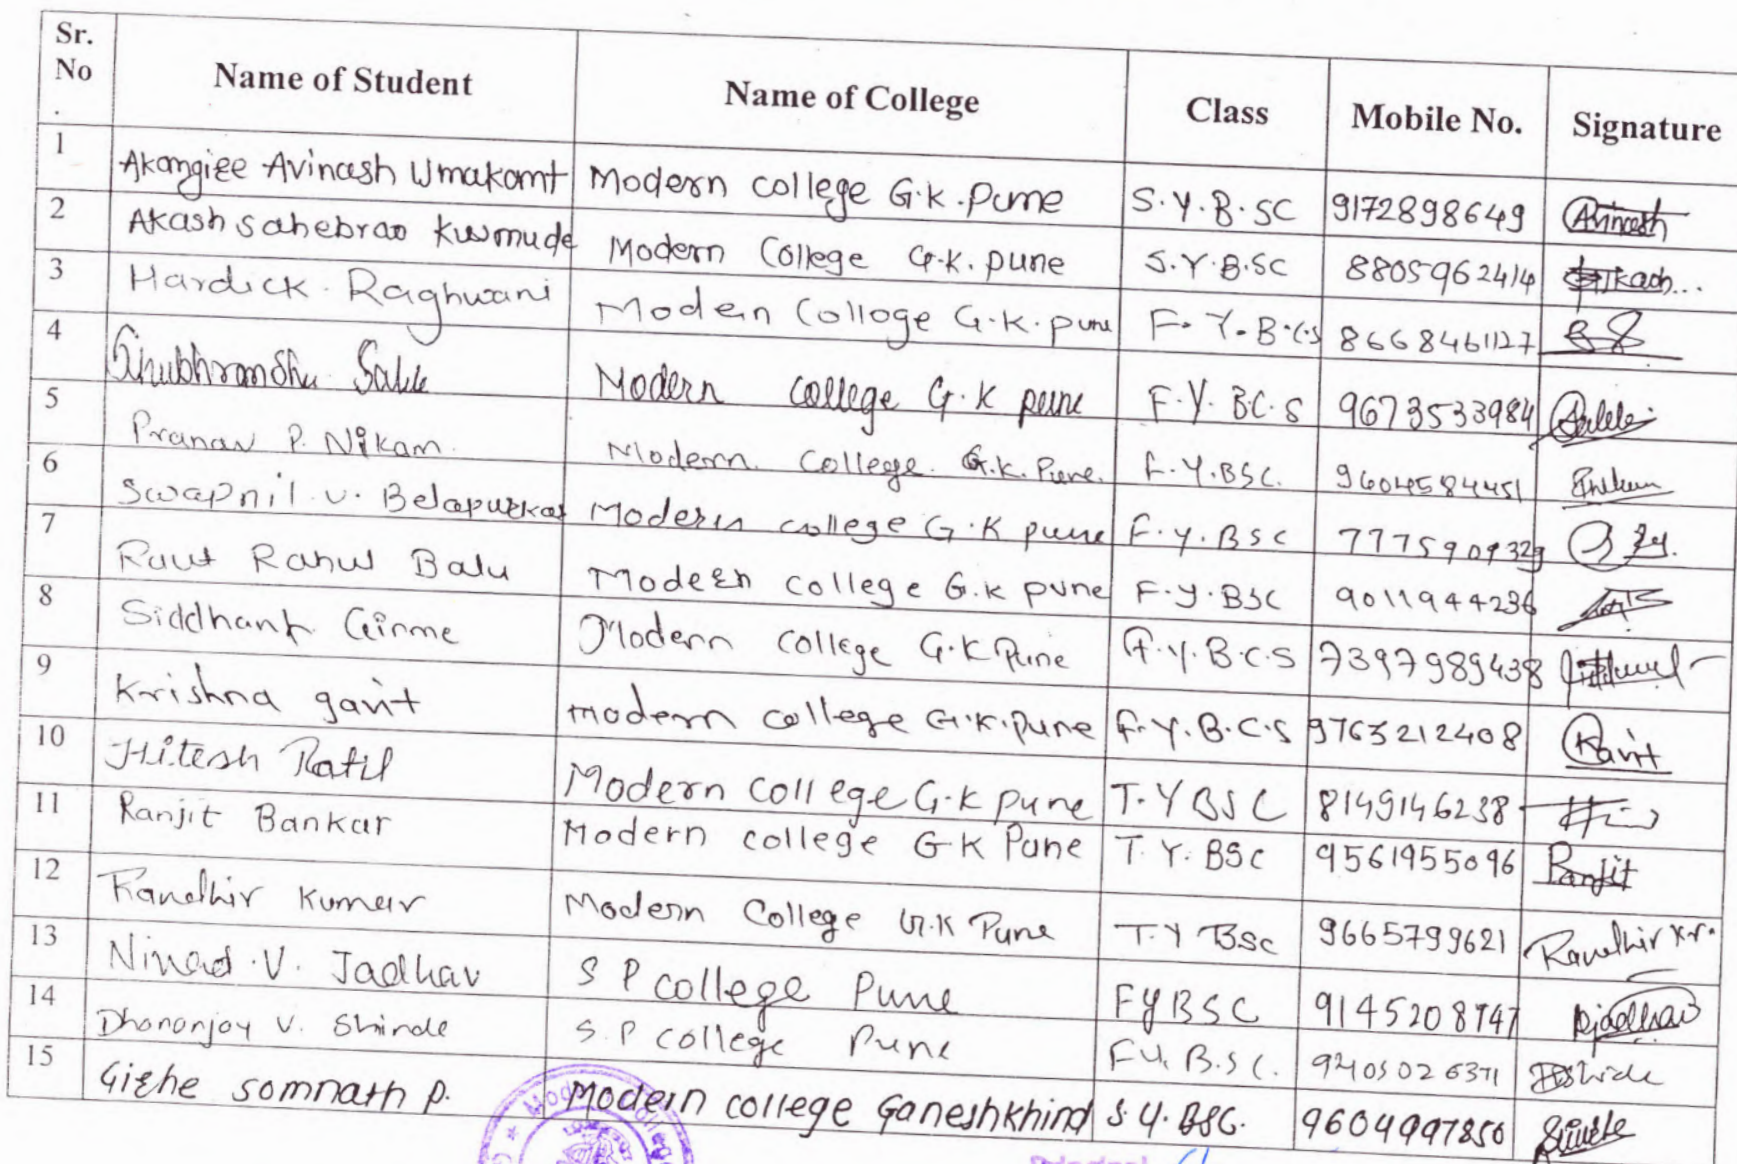 Sr. No . Name of Student Name of College Class Mobile No. Signature
1 Akangire Avinash Umakant Modern college G.K.Pune S.Y.B.SC 9172898649 Avinash
2 Akash sahebrao Kusmude Modern College G.K. pune S.Y.B.SC 8805962414 Akash...
3 Hardick Raghwani Modern College G.K. pune F.Y.B.CS 8668461127
4 Shubhramshu Modern college G.K pune F.Y. BC.S 9673533984
5 Pranav P. Nikam. Modern. College. G.K. Pune. F.Y.BSC. 9604584451
6 Swapnil.v. Belapurkar Modern college G.K pune F.Y.BSC 7775909329
7 Raut Rahul Balu Modern college G.K pune F.Y.BSC 9011944236
8 Siddhant Girme Modern college G.K Pune F.Y.B.C.S 7397989438
9 Krishna gavit modern college G.K.pune F.Y.B.C.S 9763212408 Gavit
10 Hitesh Patil Modern college G.K pune T.Y BSC 8149146238
11 Ranjit Bankar Modern college G K Pune T.Y. BSc 9561955096 Ranjit
12 Randhir Kumar Modern College G.K Pune T.Y BSc 9665799621 Randhir Kr.
13 Ninad.V. Jadhav S P college Pune FYBSC 9145208747 Njadhav
14 Dhananjay V. Shinde S.P college Pune F.Y. B.SC. 9405026371 DShinde
15 Girhe somnath P. Modern college Ganeshkhind S.Y. BSC. 9604997850
Modern College
Principal